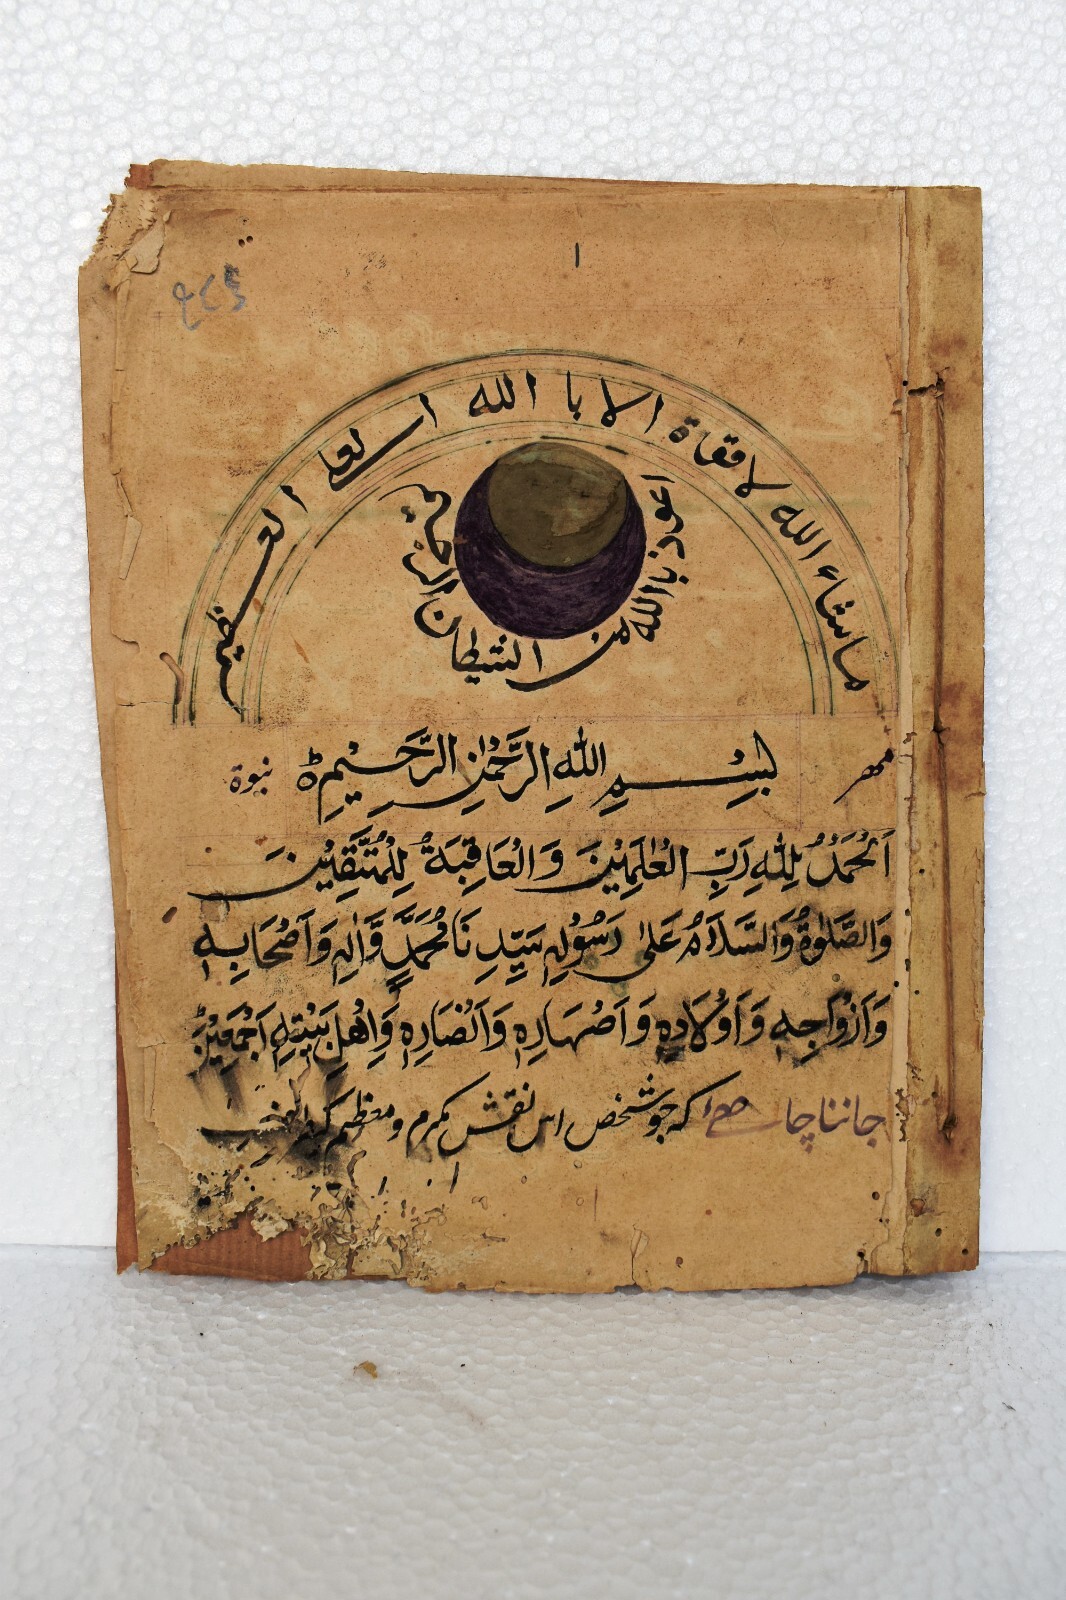 ١
ماشاء الله لا قفاة الا با الله ا لعلى ا لعظيم
اعوذ باالله من الشيطان الرجيم
مهر
بِسْمِ اللهِ الرَّحْمٰنِ الرَّحِيْمِ ه
نبوة
اَلْحَمْدُ لِلّٰهِ رَبِّ الْعٰلَمِيْنَ وَالْعَاقِبَةُ لِلْمُتَّقِيْنَ
وَالصَّلٰوةُ وَالسَّلَامُ عَلىٰ رَسُوْلِهٖ سَيِّدِنَا مُحَمَّدٍ وَّاٰلِهٖ وَاَصْحَابِهٖ
وَاَزْوَاجِهٖ وَاَوْلَادِهٖ وَاَصْهَارِهٖ وَاَنْصَارِهٖ وَاَهْلِ بَيْتِهٖ اَجْمَعِيْنَ
جاننا چاہئے کہ جو شخص اس نقش مکرم و معظم کو